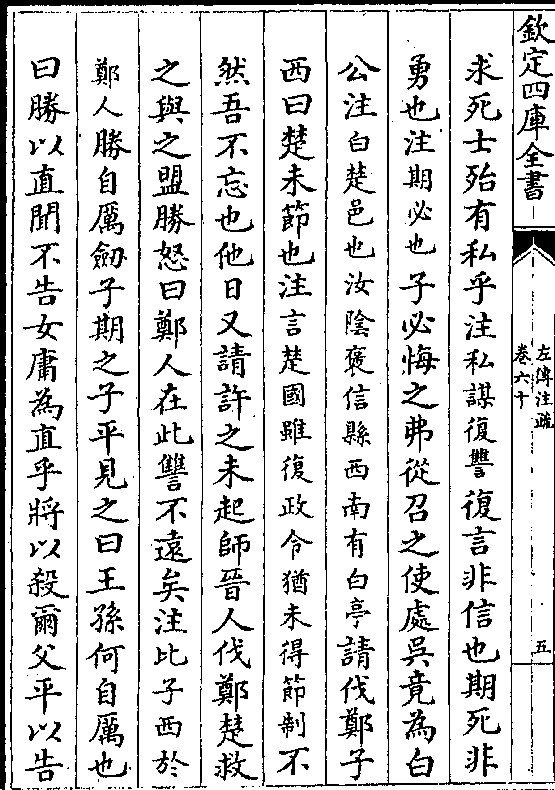 欽定四庫全書
左傳注疏
卷六十
五
求死士殆有私乎注私謀復讐復言非信也期死非
勇也注期必也子必悔之弗從召之使處吳竟為白
公注白楚邑也汝陰褒信縣西南有白亭請伐鄭子
西曰楚未節也注言楚國雖復政令猶未得節制不
然吾不忘也他日又請許之未起師晉人伐鄭楚救
之與之盟勝怒曰鄭人在此讐不遠矣注比子西於
鄭人勝自厲劒子期之子平見之曰王孫何自厲也
曰勝以直聞不告女庸為直乎將以殺爾父平以告